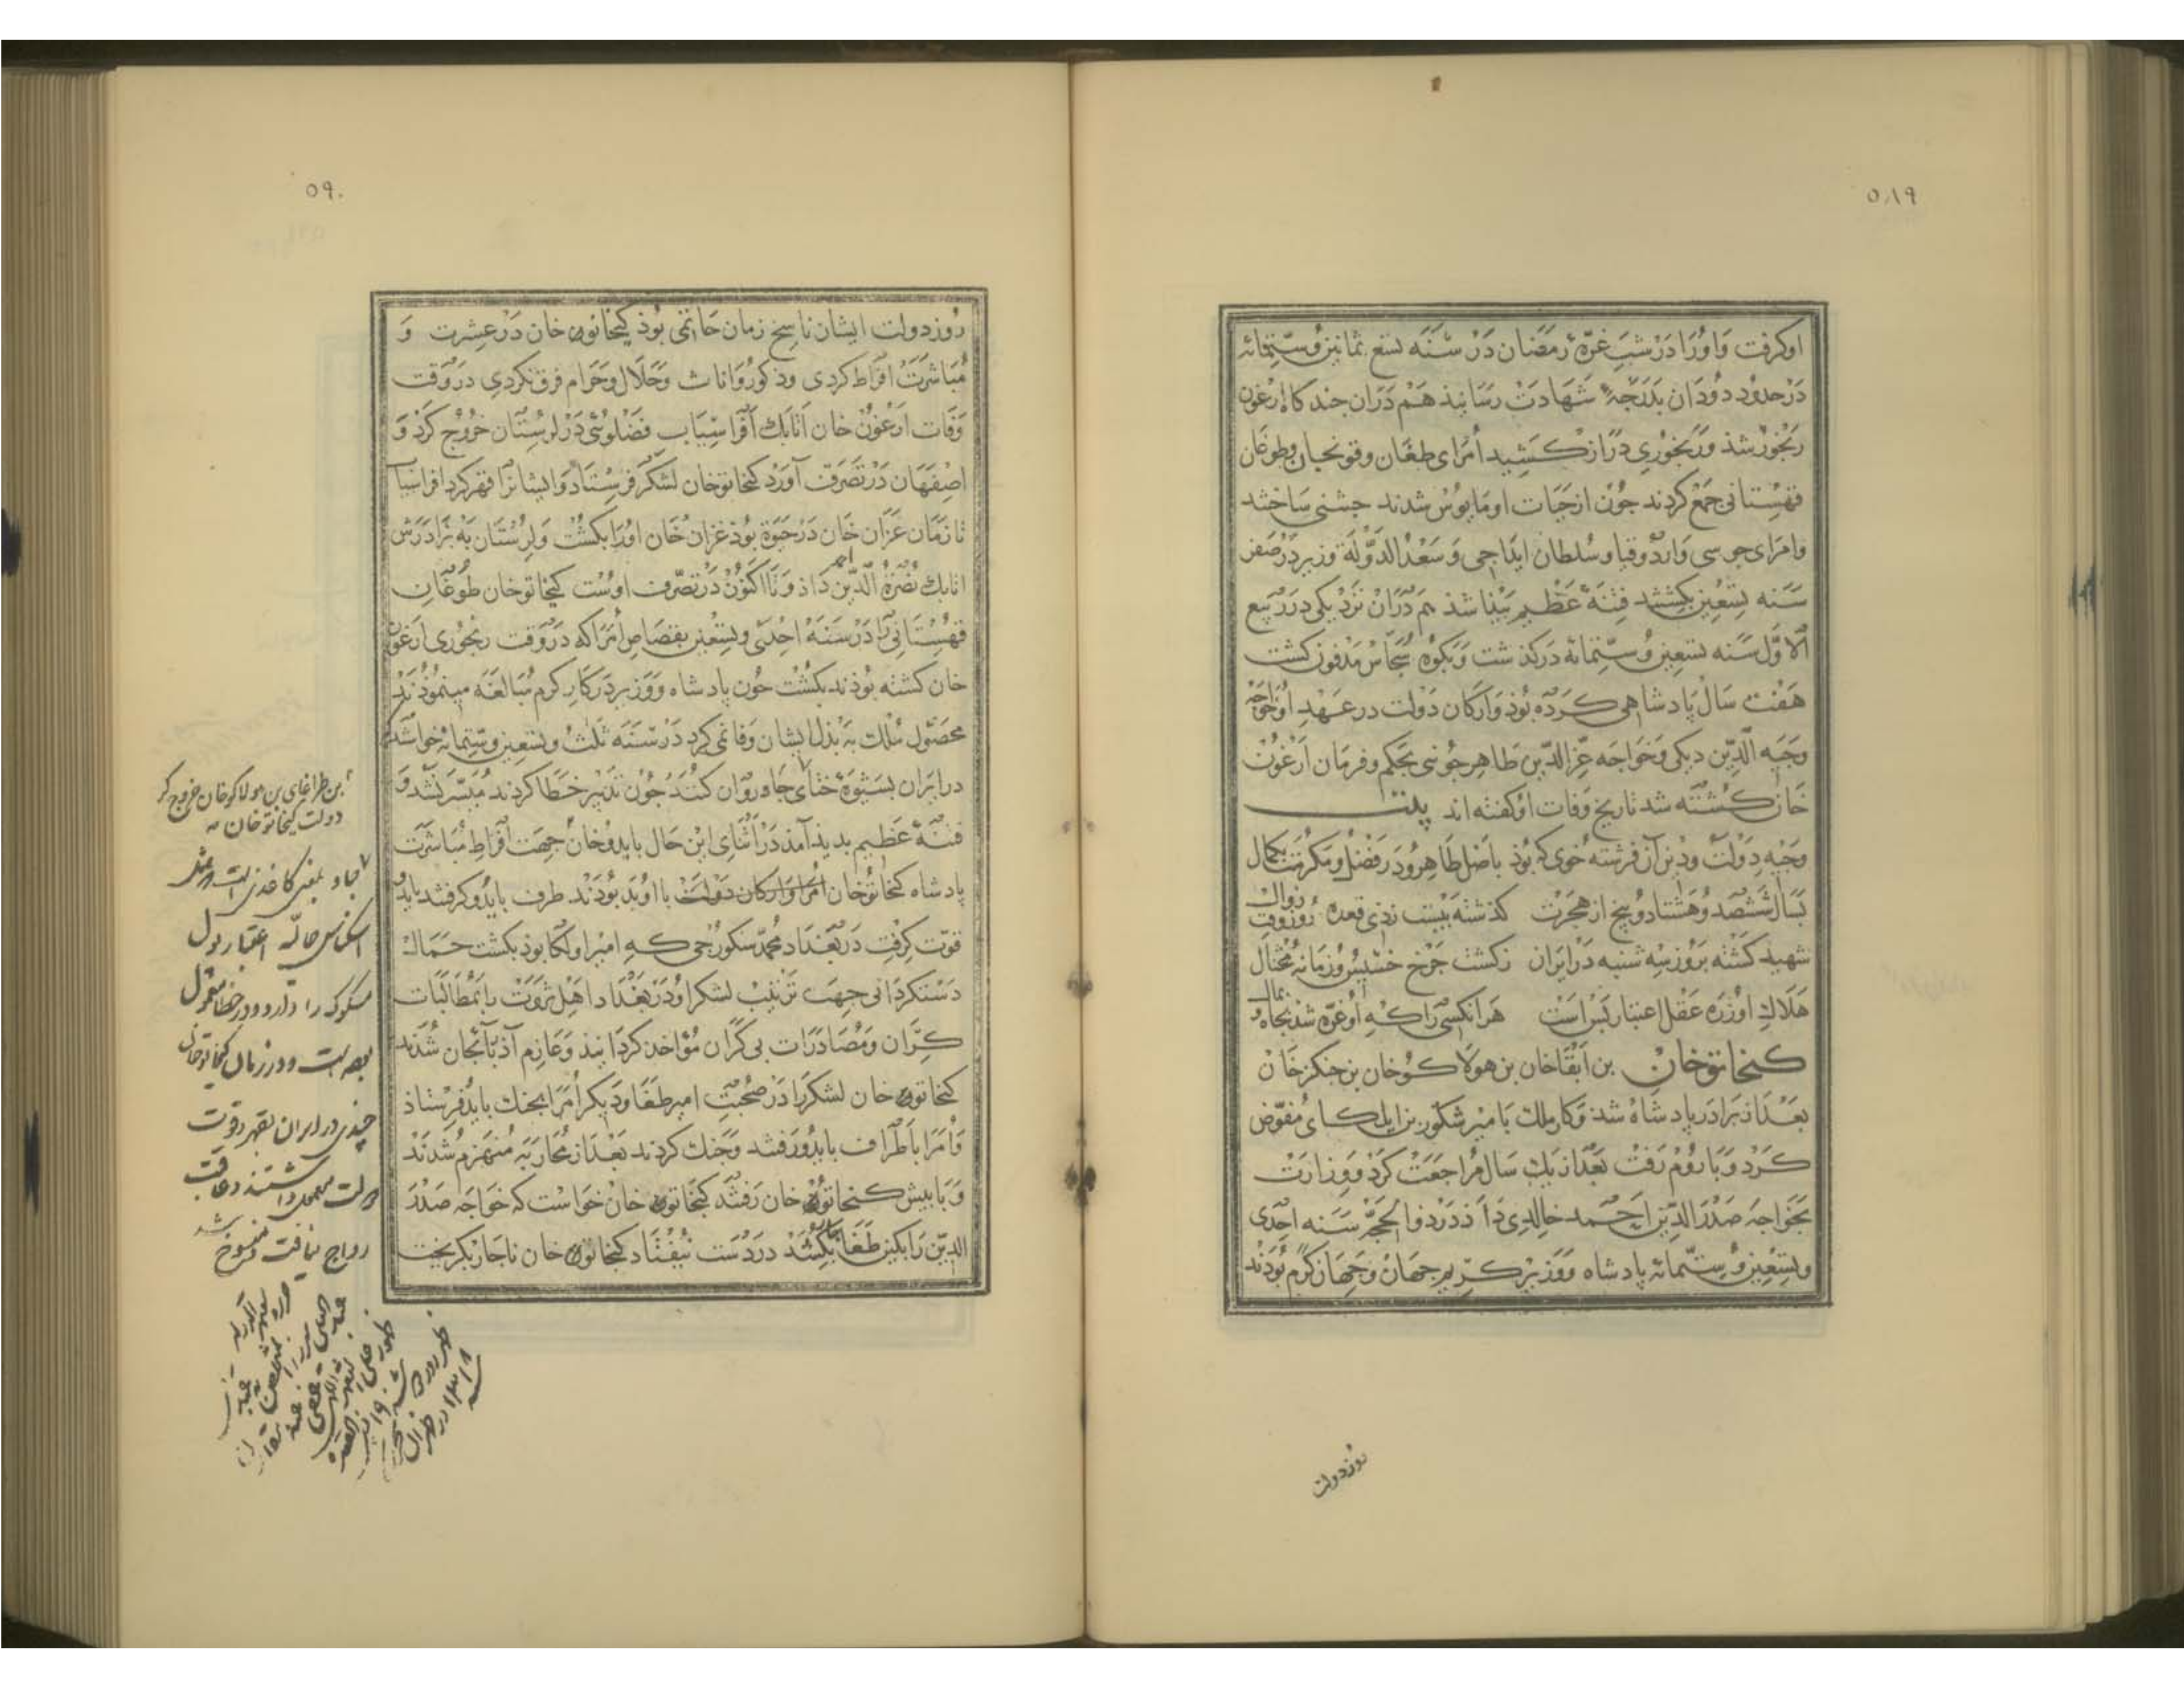 ۵۸۹
اوکرفت وَاوُرا دَرْ شبِ غرّهٔ رمضان دَرْ سَنَه تسع ثمانین وُستّمائه
دَرْ حدود دوُدان بدَرَجهٔ شَهادَتْ رسَانید هَمْ دَران چند کاه ارغون
رنجوُر شذ وَ رنجوُری دراز کَشید اُمرَای طغان وقونجیان وطوغان
قهسِتانی جمَعْ کردند جُون از حَیات او مایوُسْ شدند جشنی سَاختند
وامرَای جوسی وَاردوقیا وسُلطان ایداجی وَسَعدُ الدَّوْلَة وزیر دَرْ صَفر
سَنه تِسْعین بکشتند فتنهٔ عَظیم پیَدا شذ هم دَرانْ نزْدیکی درَ ربیع
الاوّل سَنه تسعین وُستّمائة درکذشت وَبکوُهْ سُجاسْ مَدْفون کشت
هَفْت سَالْ پادشاهی کَردَه بُوذ وَارکان دَوْلت در عَهدِ اُو خواجَه
وجَیه الدّین دیکی وَخواجه عزّ الدّین طاهِر جُوینی بحَکم وفرمان ارْغوُنْ
خانْ کُشتَه شد تاریخ وَفات اوُکفته اند بیت
وجَیه دَوْلتْ ودین آن فرشته خوُی که بُوذ باصْل طاهِر وُدرَ فضْل ومَکرمَت بکمال
بسَال شَشْصَد وُهَشتادوُ پنج از هجْرتْ کذشته بیْست زذی قعده روُز وقت زوال
شهید کَشته برُوز سِه شنبه دَرْ ایران زکشت چَرْخ خسیسْ وُ زمَانه مُحْتال
هَلاکِ اوُزرَه عَقْل اعتبار بَسْ اسَت هَر انکسَی رَا کِه اوُ غرّه شد بجَاه وُ بمال
کنخاتو خان بن ابَقا خان بن هولاکُو خان بن جنکز خان
بَعْدَ از برَادَر پادشاهْ شد وَکار ملک بامیر شکتوُر بن ایلکای مُفوّض
کَرْد وَ بارُومْ رَفتْ بَعْدَ از یَکْ سَال مُراجَعَتْ کَرْد وَوزارَتْ
بخَواجَه صَدْرَ الدّین احْمَد خالدِی دَاذ دَرْ ذوالحجَّه سَنه احِدی
وتسعین وُستّمائة پادشاه وَوَزیر کَریم جهَانْ وَجهان کرَم بُوذند
روز دولت
۵۹۰
رُوز دولت ایشان ناسِخ زمان حَاتمی بُوذ کیخاتو خان دَرْ عِشرت وَ
مُبَاشرَتْ اِفراط کردی وذکوُر وَاناث وَحَلال وحَرام فرق نکردی در وَقت
وَفات ارْغوُنْ خان اتابک اَفراسِیاب فضْلوُیی دَرْ لرُستَان خرُوج کرْد وَ
اصِفهَان دَرْ تصَرّف آورْد کنخاتو خان لشکَر فرسْتاد وایشانرا قهر کرد افراسیا
تا زمَان غزان خان دَرْ حیَوة بُوذ غزان خان اورَا بکشت وَلرُسْتان بَه برَادَرَش
اتابک نُصْرَة الّدین احمد داذ وَتا اکنوُنْ دَرْ تصَرّف اوُست کیخاتو خان طوُغان
قهُسْتانی رَا دَرْ سَنَه اِحْدی وتسْعین بقصَاص اُمرَا که درَ وَقت رنجوُری ارَغوُن
خان کشته بُوذند بکشْت جُون پادشاه وَوَزیر دَرَ کار کرَم مُبالَغَه مینموُذند
محصُول مُلک بَه بذل ایشان وَفا نمی کرد دَرْ سَنه ثلثْ وتسعین وستّمائه خواستند که
در ایران بشیَوَهٔ ختای جاو روَان کنند جُون تدبیر خَطا کردند مُیسّر نشد وَ
فتنهٔ عَظیم بدید آمد دَرْ اثنایِ ایْن حال بایدو خان جهَت اِفراطِ مُباشرَت
پادشاه کنخاتوُ خان امَرا وَارکان دَوْلت با او بَد بُودَند طرف بایدُو کرفتند بایدو
قوّت کِرفت دَر بَغْداد محَمّد سکوُرجی کِه امیر اولکا بوذ بکشت جَمَال
دَستکرْدانی جهَت ترتیبْ لشکر اوُ دَرْ بَغدْاد اهْل ثروَتْ را بَمُطالبات
کِران ومُصَادرَات بی کران مُؤاخذ کردانید وَعازِم آذربایجَان شُدند
کنخاتو خان لشکررَا دَرْ صُحبَت امیر طَغاوَ دیکر اُمَرا بجنک بایدُو فرسْتاذ
وَاُمَرا باطراف بایدُو رَفتند وَجنک کردند بَعْد از مُحارَبَه مُنهَزمْ شدَند
وَبا پیش کنخاتو خان رَفتند کیخاتو خان خوَاست که خوَاجَه صَدْرَ
الدّین رَا بکین طَغا بکشد درَ دَست نیفتاد کیخاتو خان ناچار بکریخت
بن طراغای بن هولاکو خان خروج کر
دولت کیخاتو خان
چاو بمعنی کاغذی است که مثل
اسکناس حالیه اعتبار پول
مسکوک را دارد ودر ختا معمول
بوده است ودر زمان کیخاتو خان
چندی در ایران بقهر وقوت
دولت معمول داشتند وعاقبت
رواج نیافت ومنسوخ شد